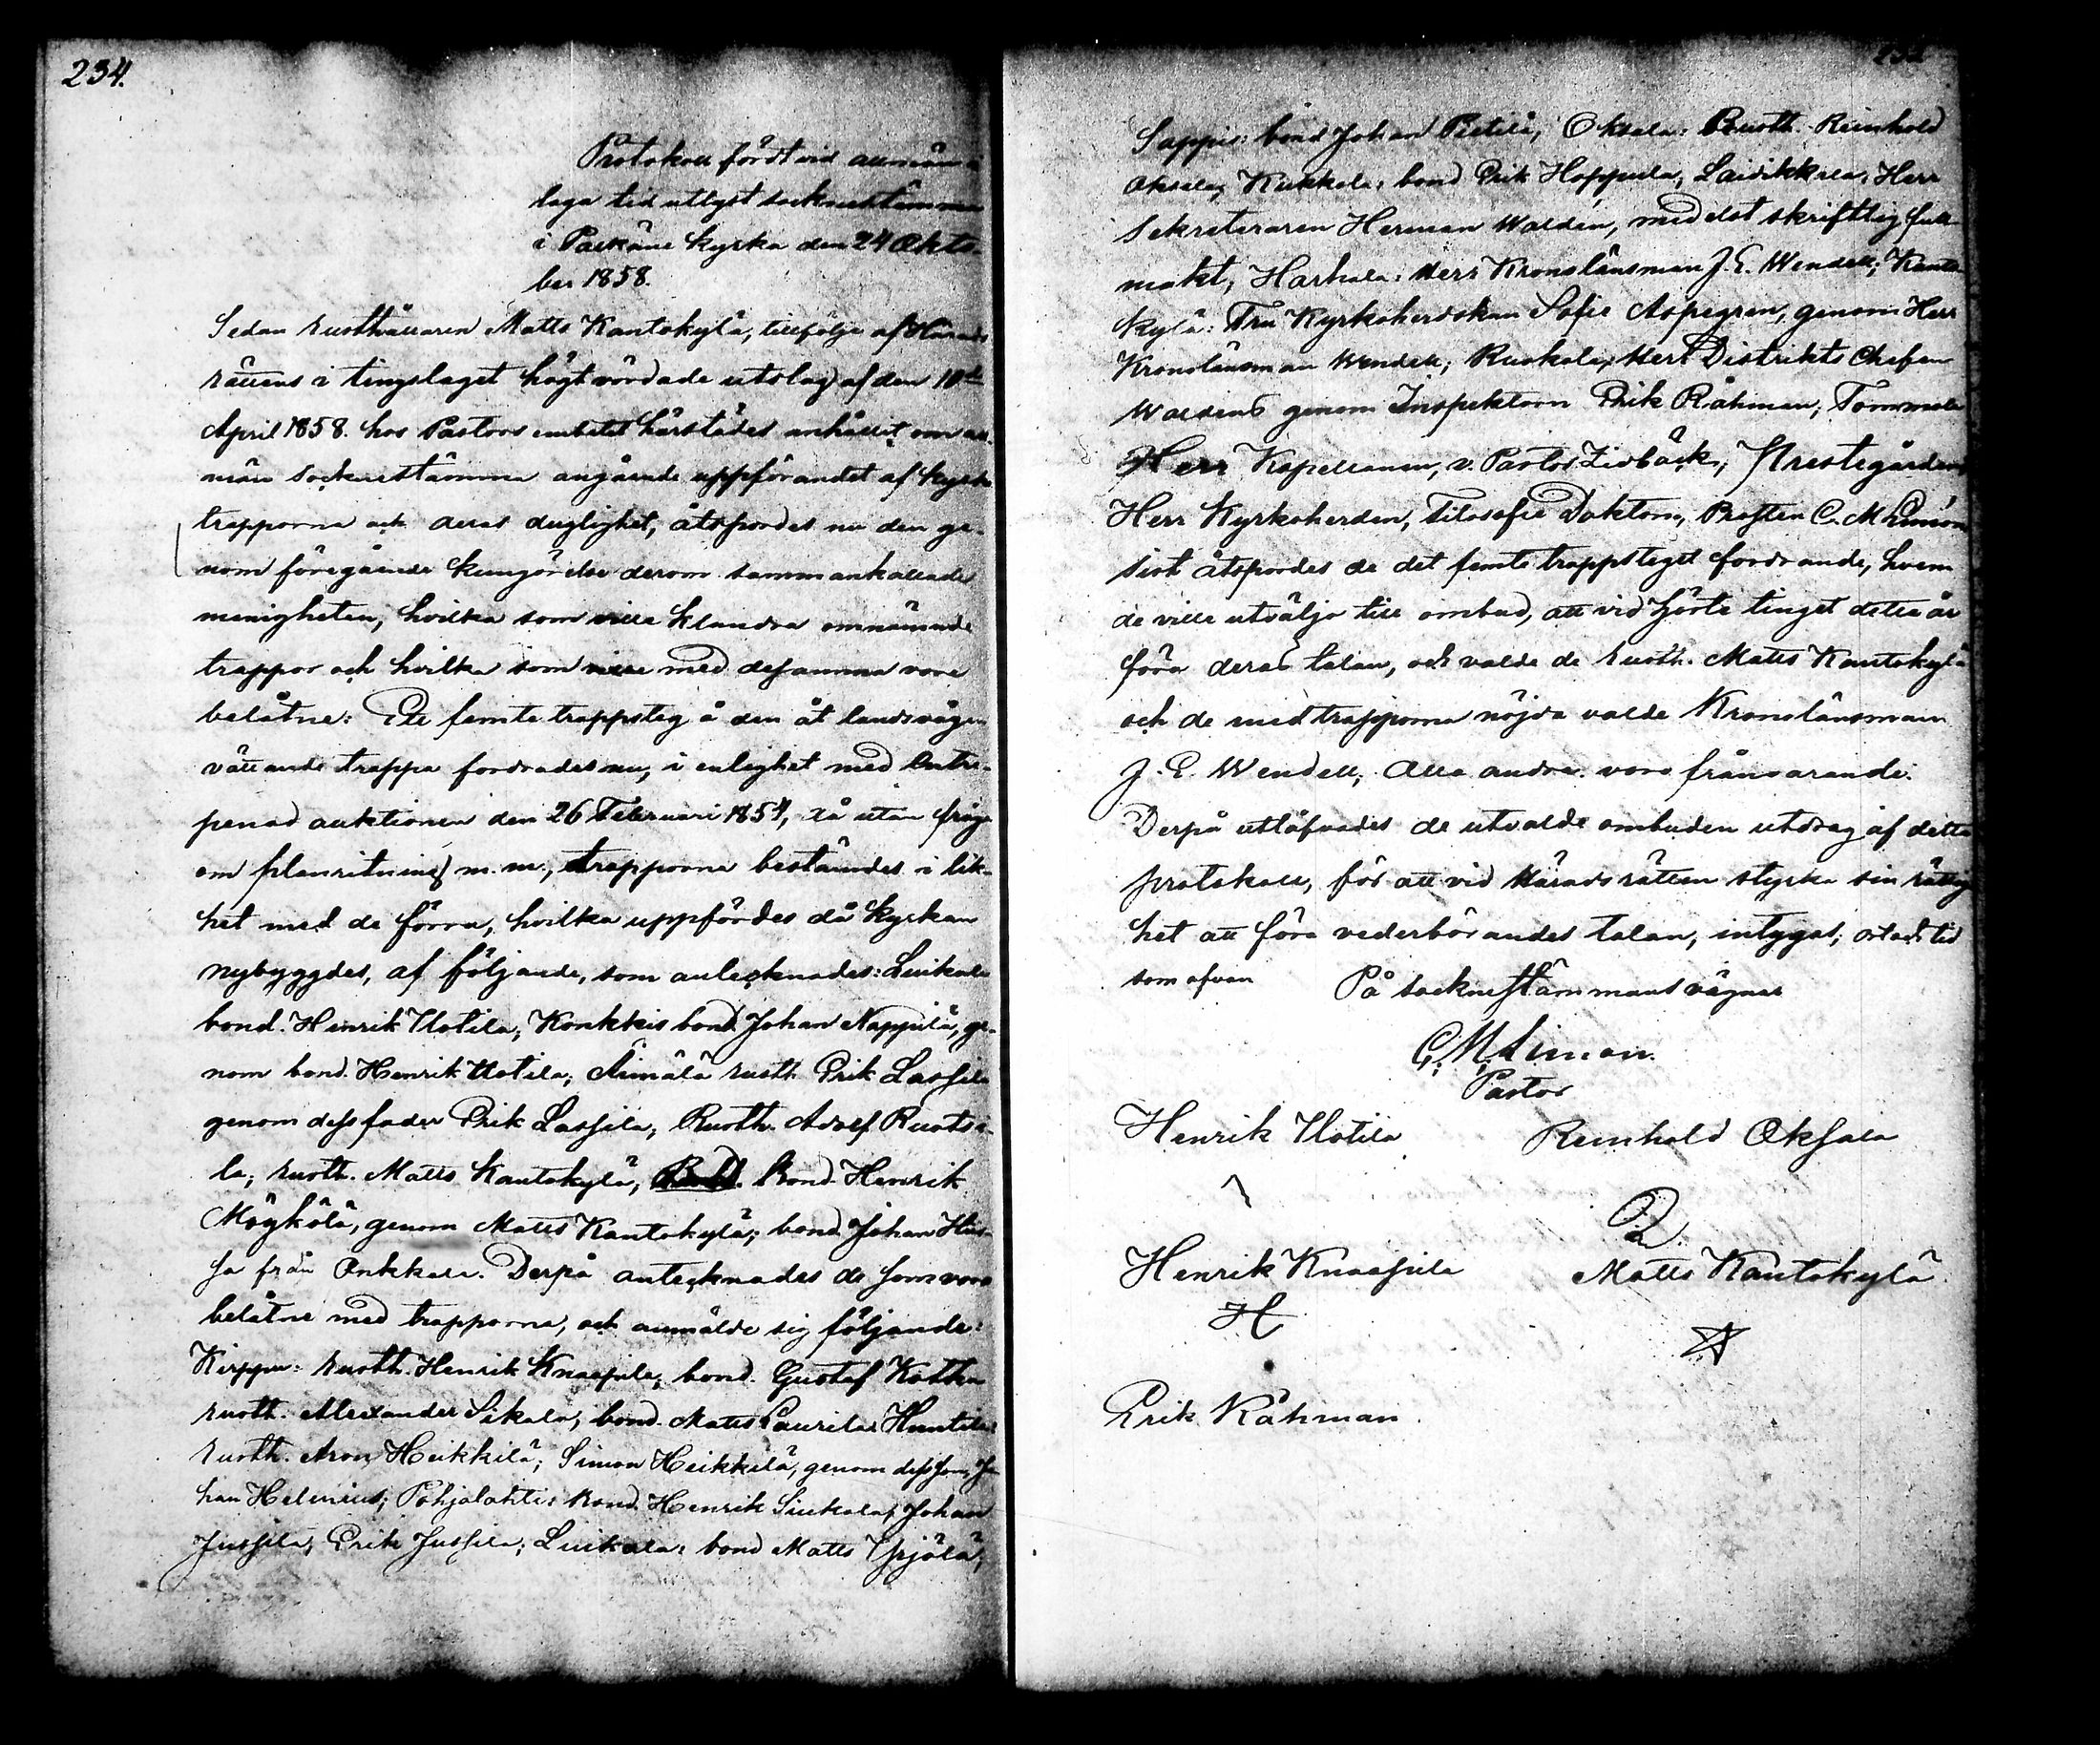 234.
Protokoll fördt vid allmän i
laga tid utlyst sockenstämma
i Pälkäne kyrka den 24 Okto-
ber 1858.
Sedan rusthållaren Matts Kantokylä, tillfölje af Härads
rättens i tingslaget högtvördade utslag af den 10de
April 1858. hos Pastors embetet härstädes anhållit om all-
män sockenstämma angående uppförandet af kyrko
trapporna och deras duglighet, åtspordes nu den ge-
nom föregående kungörelse derom sammankallade
menigheten, hvilka som ville klandra omnämnde
trappor och hvilka som ville med desamma vore
belåtne: Ett femte trappsteg å den åt landsvägen
vättande trappa fordrades nu, i enlighet med Entre-
penad auktionen den 26 Februari 1854, då utan fråga
om planritning m. m., trapporna bestämdes i lik-
het med de förra, hvilka uppfördes då kyrkan
nybyggdes, af följande, som antecknades: Luikala
bond. Henrik Uotila; Konkkis bond Johan Nappila, ge-
nom bond. Henrik Uotila; Äimälä rusth. Erik Lassila
genom dess fader Erik Lassila; Rusth. Adolf Ruotsi-
la; rusth. Matts Kantokylä; Bond. Henrik
Mögkölä, genom Matts Kantokylä; bond Johan
sa från Onkkala. Derpå antecknades de som voro
belåtne med trapporna, och anmälde sig följande:
Kirppu: rusth. Henrik Knaapila; bond. Gustaf Kottka
rusth. Alexander Sikala, bond. Matts Laurila; Huntila:
rusth. Aron Heikkilä; Simon Heikkilä, genom dess son, Jo-
han Helenius; Pohjalahti: bond. Henrik Siukola; Johan
Jussila; Erik Jussila; Luikala: bond Matts Yrjölä;
Sappis: bond Johan Pietilä; Oksala: Rusth. Reinhold
Oksala; Kukkola: bond Erik Hoppula; Laidikkala: Herr
Sekreteraren Herman Waldén, medelst skriftlig full-
makt; Harhala: Herr Kronolänsman J. E. Wendell; Kanto-
kylä: Fru Kyrkoherdskan Sofie Aspegren, genom Herr
Kronolänsman Wendell; Ruokola: Herr Distrikts Chefen
Waldens genom Inspektorn Erik Råhman; Tommola
Herr Kapellanen, v. Pastor Lidbäck; Prestegården
Herr Kyrkoherden, Filosofie Doktorn, Prosten C. M Limón
Sist åtspordes de det femte trappsteget fordrande, hvem
de ville utvälja till ombud, att vid hösttinget detta år
föra deras talan, och valde de rusth. Matts Kantokylä
och de med trapporna nöjda valde Kronolänsman
J. E. Wendell; alla andra voro frånvarande.
Derpå utlofvades de utvalde ombuden utdrag af detta
protokoll, för att vid Häradsrätten styrka sin rättig-
het att föra vederbörandes talan, intygas; ort och tid
som ofvan På sockenstämmans vägnar
C. M. Limon.
Pastor
Henrik Uotila Reinhold Oksala
Henrik Knaapila Matts Kantokylä
H
Erik Råhman.